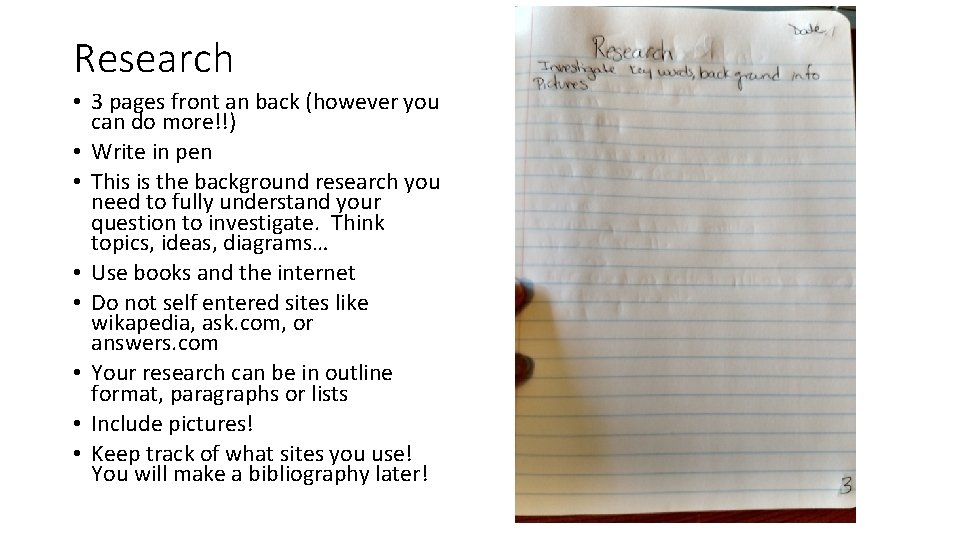 Research
• 3 pages front an back (however you
can do more!!)
• Write in pen
• This is the background research you
need to fully understand your
question to investigate.  Think
topics, ideas, diagrams…
• Use books and the internet
• Do not self entered sites like
wikapedia, ask.com, or
answers.com
• Your research can be in outline
format, paragraphs or lists
• Include pictures!
• Keep track of what sites you use!
You will make a bibliography later!
Date
Research
Investigate key words, background info
Pictures
3